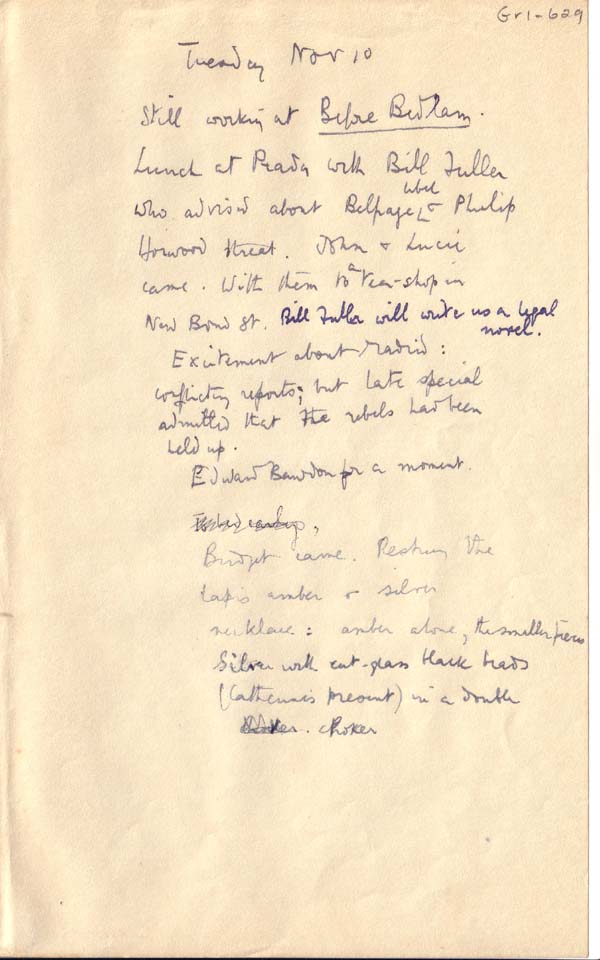 Gr1-629
Tuesday Nov 10
Still working at Before Bedlam.
Lunch at Prada with Bill Fuller
who advised about Belpage libel & Philip
Horwood threat. John & Lucie
came. With them to a tea-shop in
New Bond St. Bill Fuller will write us a legal
novel.
Excitement about Madrid:
conflicting reports; but late special
admitted that the rebels had been
held up.
Edward Bawdon for a moment.
Bridget came. Restrung the
lapis amber & silver
necklace: amber alone, the smaller pieces
silver with cut-glass black beads
(Catherine's present) in a double
choker